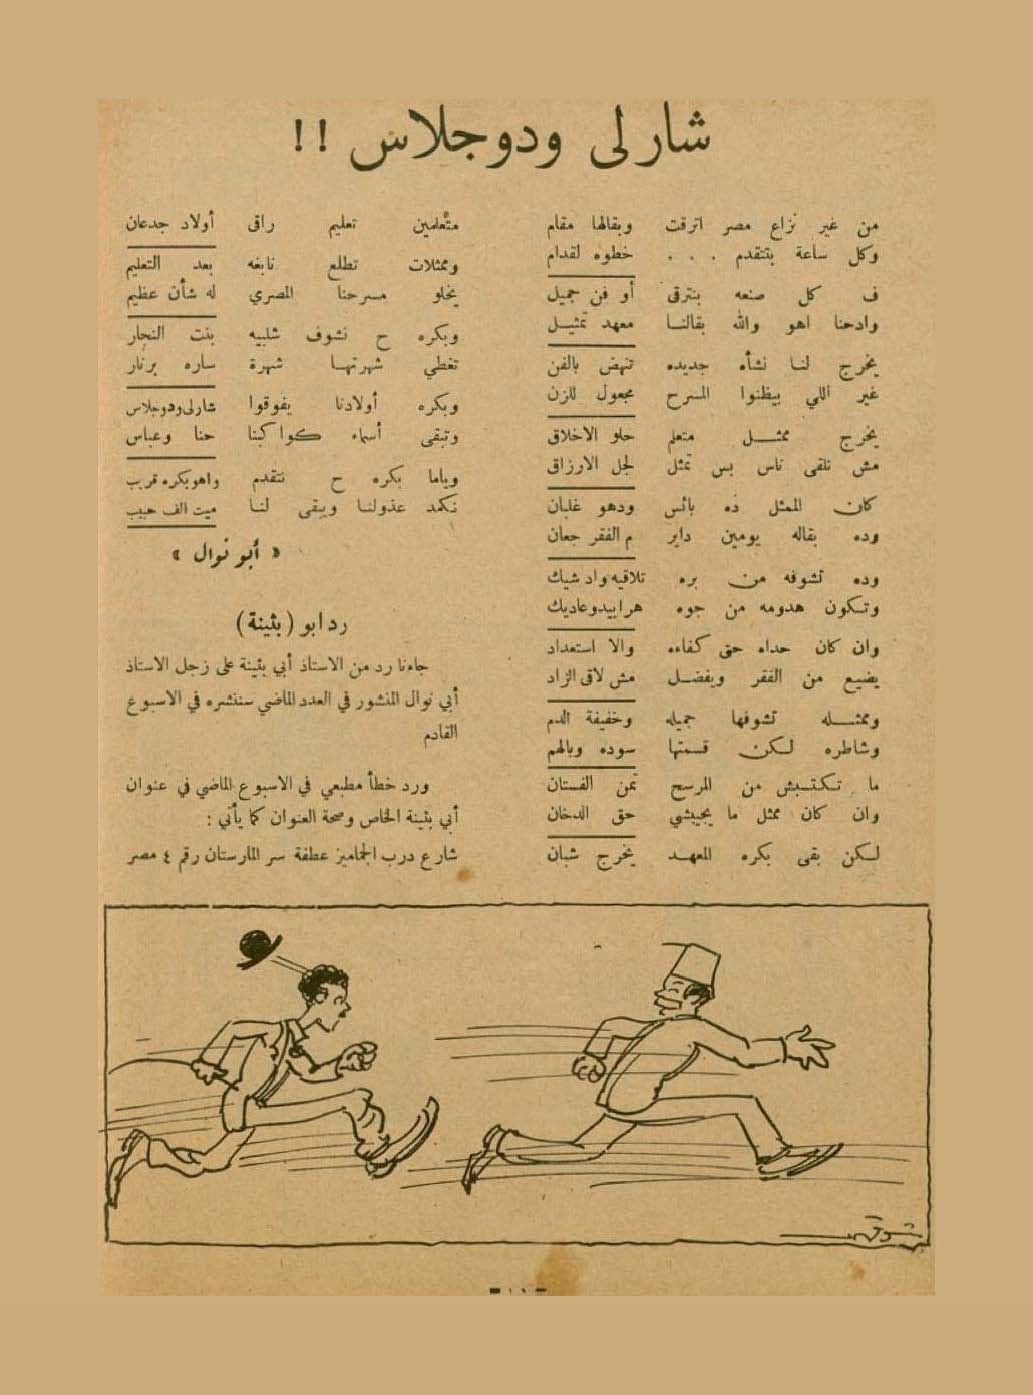 شارلى ودوجلاس !!
من غير نزاع مصر اترقت وبقالها مقام
وكل ساعة بتتقدم . . . خطوه لقدام
ف كل صنعه بنترقى أو فن جميل
وادحنا اهو والله بقالنا معهد تمثيل
يخرج لنا نشأه جديده تنهض بالفن
غير اللي بيظنوا المسرح مجعول للزن
يخرج ممثل متعلم حلو الاخلاق
مش تلقى ناس بس تمثل لجل الارزاق
كان الممثل ده بائس ودهو غلبان
وده بقاله يومين داير م الفقر جعان
وده تشوفه من بره تلاقيه واد شيك
وتكون هدومه من جوه هرابيد وعاديك
وان كان حداه حق كفاءه والا استعداد
يضيع من الفقر وبفضل مش لاقى الزاد
وممثله تشوفها جميله وخفيفة الدم
وشاطره لكن قسمتها سوده وبالهم
ما تكتسبش من المرسح تمن الفستان
وان كان ممثل ما يجيبشي حق الدخان
لكن بقى بكره المعهد يخرج شبان
متعلمين تعليم راقى أولاد جدعان
وممثلات تطلع نابغه بعد التعليم
يخلو مسرحنا المصري له شأن عظيم
وبكره ح نشوف شلبيه بنت النجار
تغطي شهرتها شهرة ساره برنار
وبكره أولادنا يفوقوا شارلى ودوجلاس
وتبقى أسماء كواكبنا حنا وعباس
وياما بكره ح نتقدم واهو بكره قريب
نكمد عذولنا ويبقى لنا ميت الف حبيب
« أبو نوال »
رد ابو (بثينة)
جاءنا رد من الاستاذ أبي بثينة على زجل الاستاذ
أبي نوال المنشور في العدد الماضي سننشره في الاسبوع
القادم
ورد خطأ مطبعي في الاسبوع الماضي في عنوان
أبي بثينة الخاص وصحة العنوان كما يأتي :
شارع درب الجماميز عطفة سر المارستان رقم ٤ مصر
شوقى